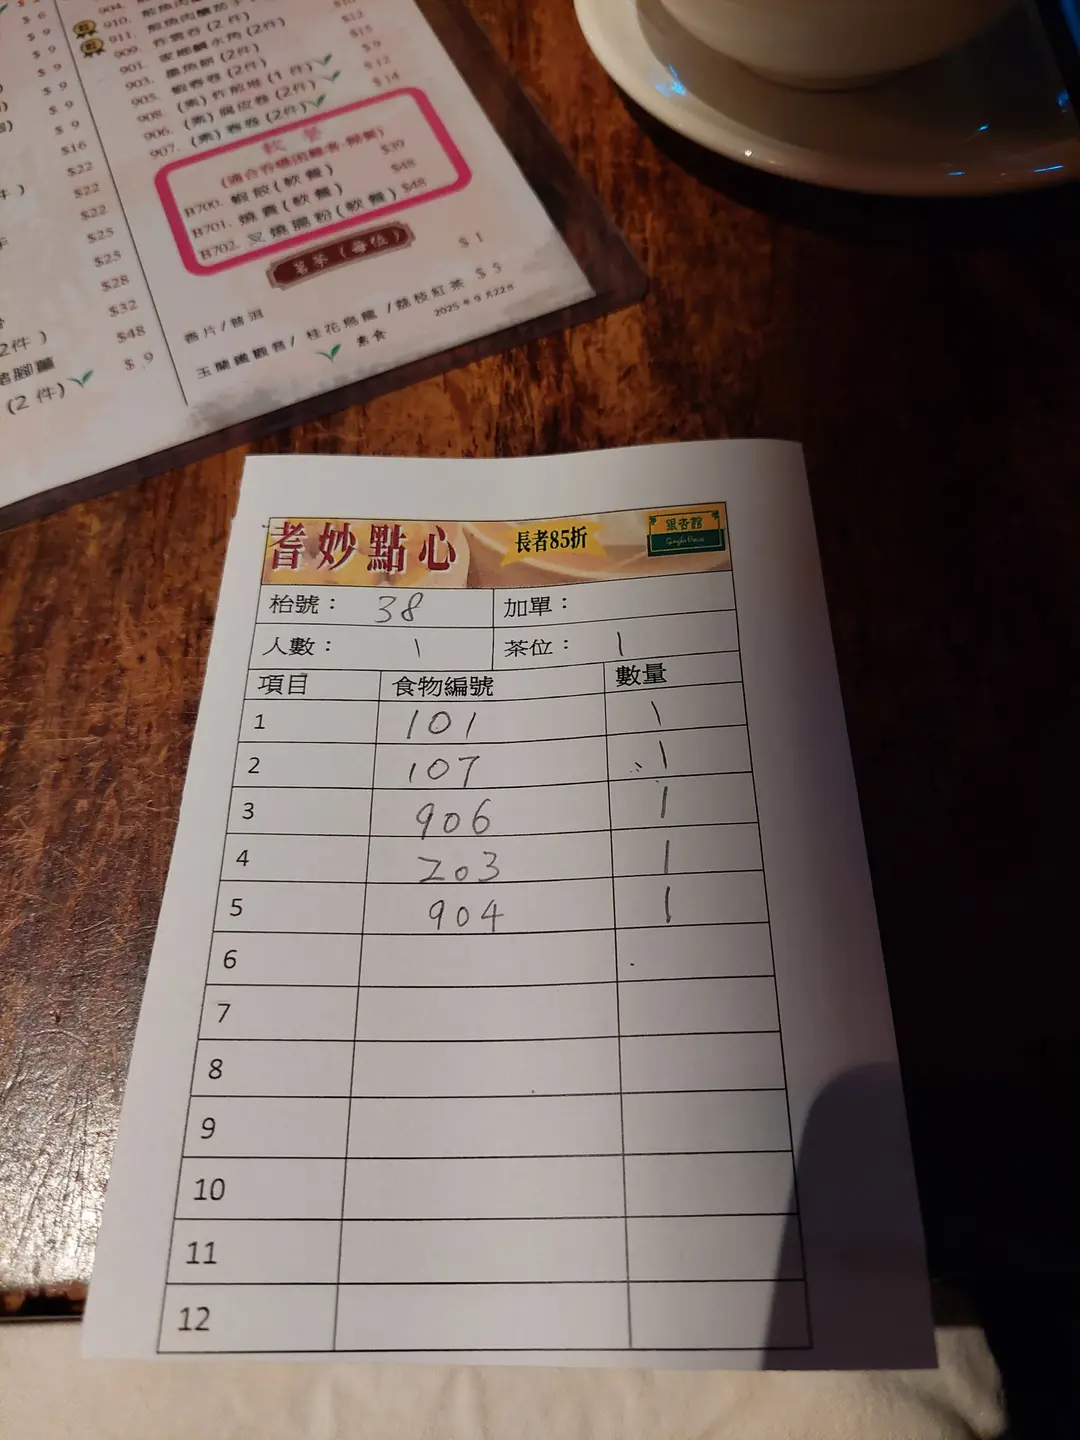 $ 6
$ 9
$ 9
$ 9
$ 9
$ 9
$16
$22
$22
$22
$25
$25
$28
$32
2件 )
$48
豬腳薑
$ 9
(2 件)
904.
910.
911.
909. 炸雲吞 (2 件)
901. 家鄉鹹水角 (2件)
903. 墨魚餅 (2件)
905. 蝦春卷 (2件)
908. (素) 炸煎堆 (1 件)
906. (素) 腐皮卷 (2件)
907. (素) 春卷 (2件)
$12
$15
$ 9
$12
$14
軟 餐
(適合吞嚥困難者-照製)
B700. 蝦餃(軟餐) $39
B701. 燒賣(軟餐) $48
B702. 叉燒腸粉(軟餐) $48
茗茶 (每位)
香片/普洱 $ 1
玉蘭鐵觀音/ 桂花烏龍 /荔枝紅茶 $ 5
素食
2025 年 9 月22日
耆妙點心
長者85折
銀杏館
Gingko House
枱號： 38
加單：
人數： 1
茶位： 1
項目 食物編號 數量
1 101 1
2 107 1
3 906 1
4 203 1
5 904 1
6
7
8
9
10
11
12